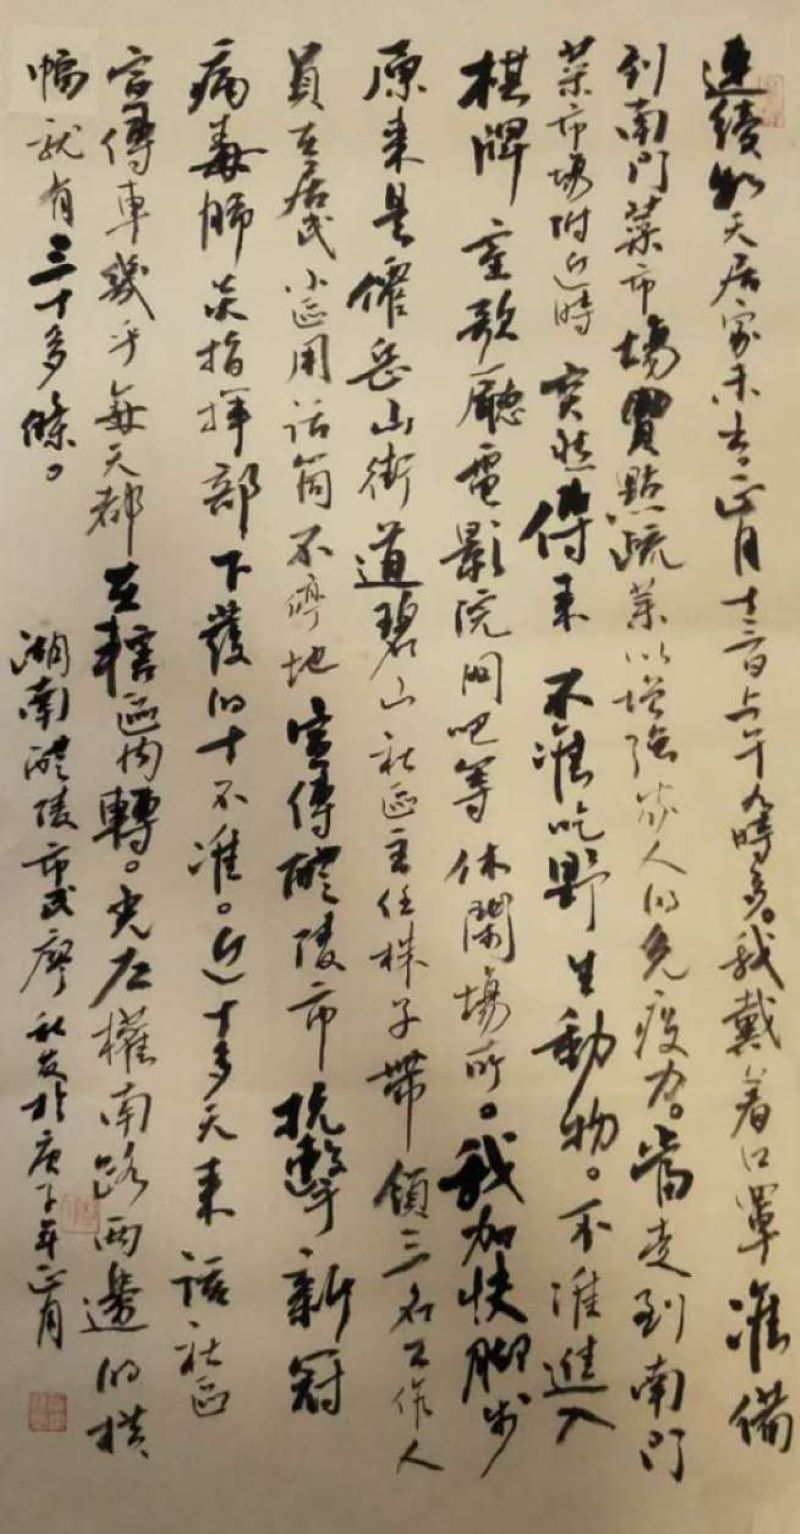 連續數天居家未出。正月十三日上午九時多。我戴着口罩準備
到南門菜市場買點蔬菜以增强家人的免疫力。當走到南門
菜市場附近時突然傳来不准吃野生動物。不准進入
棋牌室歌廳電影院网吧等休閑場所。我加快脚步
原来是僊岳山街道碧山社區主任株子帶領三名工作人
員在居民小區用话筒不停地宣傳醴陵市抗擊新冠
病毒肺炎指揮部下發的十不准。近十多天来該社區
宣傳車幾乎每天都在轄區内轉。光左權南路两邊的横
幅就有三十多條。
湖南醴陵市民廖秋發於庚子年正月